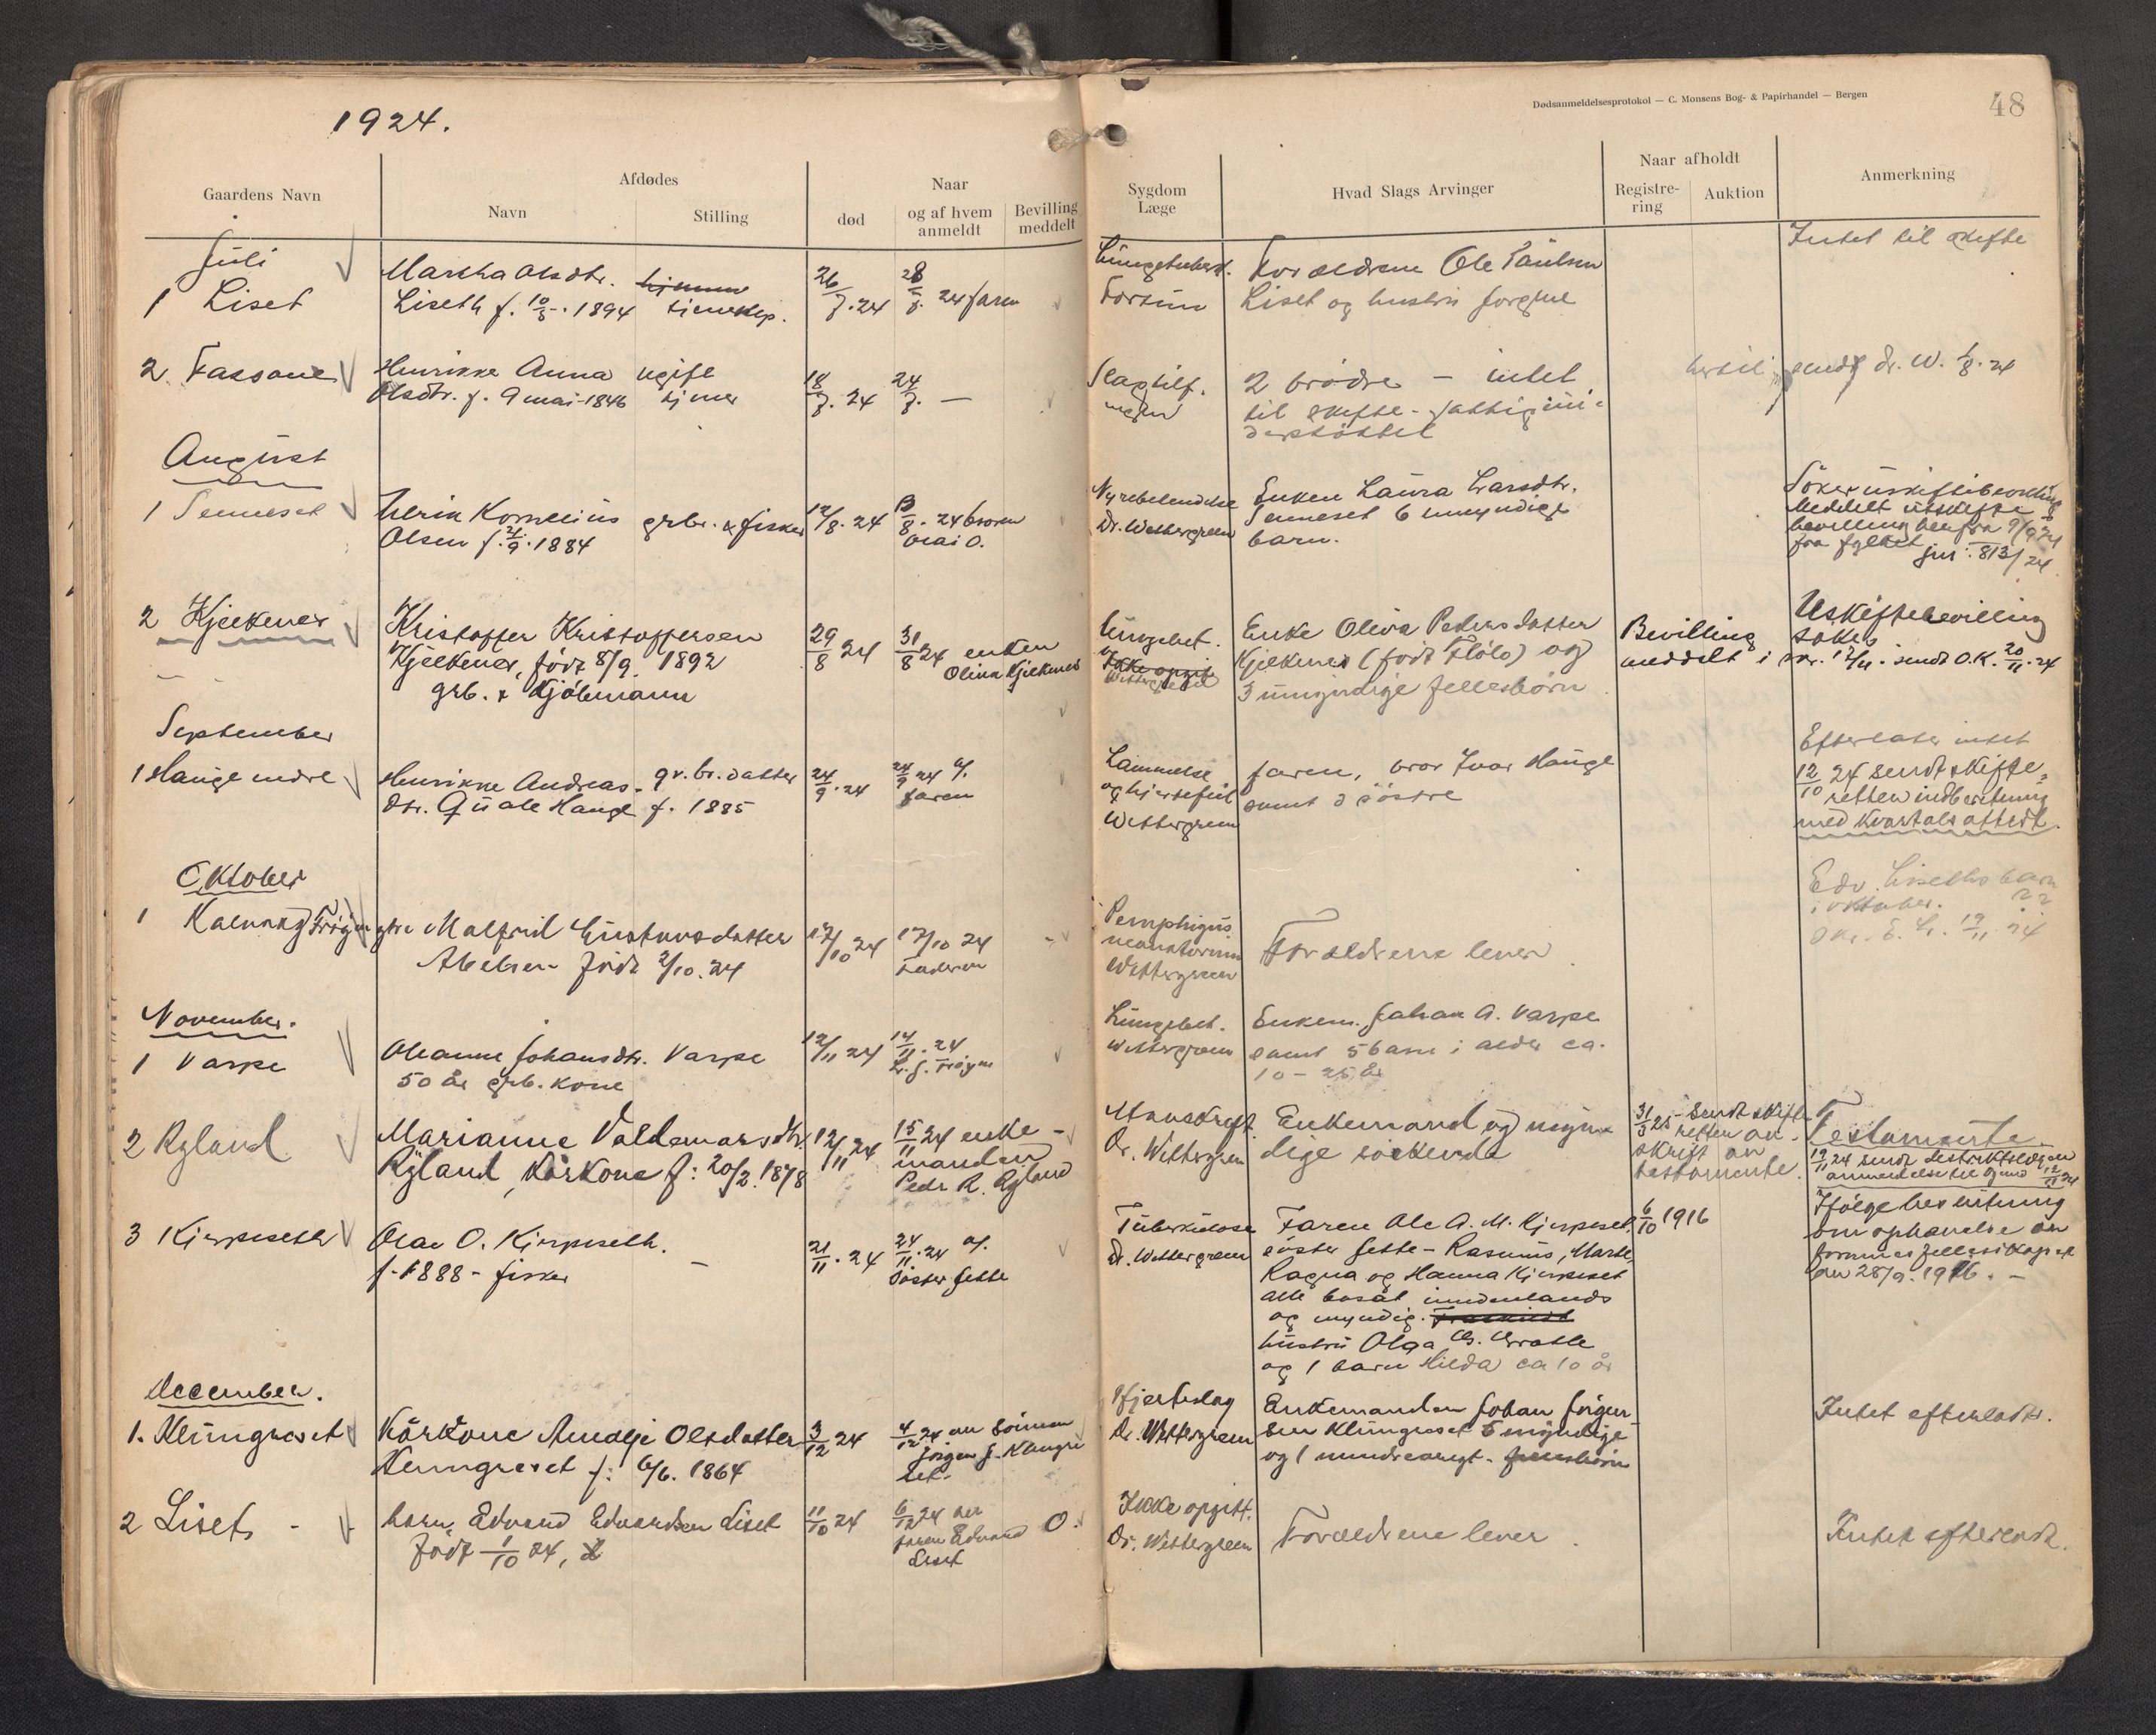 1924.
Dødsanmeldelsesprotokol — C. Monsens Bog- & Papirhandel — Bergen
48
Gaardens Navn
Afdødes
Navn
Stilling
Naar
død
og af hvem
anmeldt
Bevilling
meddelt
Sygdom
Læge
Hvad Slags Arvinger
Naar afholdt
Registre-
ring
Auktion
Anmerkning
Juli
1 Liset
Martha Olsdtr.
Liseth f. 10/5. 1894
26/7. 24
28/7. 24 faren
Forældrene Ole Paulsen
Liset og hustru
Intet til skifte
2 Fassane
Henrikke Anna
Olsdtr. f. 9 mai 1846
ugift
18/7. 24
24/7. —
Slagtilf.
2 brødre — intet
til skifte - fattigun-
derstöttet
sendt dr. W. 1/8. 24
August
1 Senneset
Ulrik Kornelius
Olsen f. 9. 1884
grbr. & fisker
12/8. 24
13/8. 24 broren
Nyrebetendelse
Dr. Wettergreen
Enken Laura Larsdtr.
Senneset 6 umyndige
barn.
Söker uskiftebevilling
Meddelt uskifte
bevilling
fra fylket jnr. 813/24
2 Kjelkenes
Kristoffer Kristoffersen
Kjelkenes, født 8/9. 1892
grb. & Kjöbmann
29/8 24
31/8 24 enken
Olina Kjelkenes
Lungebet.
Wettergreen
Enke Oliva Pedersdatter
Kjelkenes (født Flölo) og
3 umyndige fellesbörn
Bevilling
meddelt i skr. 12/11. sendt O.K. 20/11. 24
Uskiftebevilling
søkes
September
1 Hauge indre
Henrikke Andreas-
dtr. Quale Hauge f. 1885
gr. br. datter
24/9. 24
24/9 24 af
faren
Lammelse
og hjertefeil
Wettergreen
faren, bror Ivar Hauge
samt 3 söstre
Efterlater intet
12/10 24 sendt skifte-
retten indberetning
med kvartalsattest.
Oktober
1
Malfrid Gustavsdatter
Abelsen født 2/10. 24
17/10 24
17/10 24
Faderen
Pemphigus
neonatorum
Wettergreen
Forældrene lever
Edv. Liseths barn
i oktober.
November.
1 Varpe
Oleanne Johansdtr. Varpe
50 år grb. kone
12/11 24
14/11. 24
Lungebet.
Wettergreen
Enkem. Johan A. Varpe
samt 5 barn i alder ca.
10 - 25 år
2 Ryland
Marianne Valdemarsdtr.
Ryland, Kårkone f: 20/2. 1878
12/11 24
15/11 24 enke-
manden
Peder R. Ryland
Dr. Wettergreen
Enkemand og myn-
dige söskende
31/3 25 - Sendt skifte
retten av-
skrift av
testamente.
Testamente.
3 Kjerpeseth
Olai O. Kjerpeseth.
f. 1888 - fisker
21/11. 24
24/11. 24 af.
Söster Jette
Tuberkulose
Dr. Wettergreen
Faren Ole A. M. Kjerpeset,
söster Jette - Rasmus, Marte,
Ragna og Hanna Kjerpeset
alle bosat innenlands
og myndig.
hustru Olga
og 1 barn Hilda ca 10 år
6/10 1916
Ifølge beslutning
om ophævelse av
formuesfellesskapet
av 28/9. 1916. -
December.
1. Klungreset
Kårkone Amalje Olsdatter
Klungreset f: 6/6. 1864
3/12 24
4/12 24 av sönnen
Jørgen J. Klungre
set.
Hjerteslag
Dr. Wettergreen
Enkemanden Johan Jörgen-
sen Klungreset 5 myndige
og 1 mindreaarigt.
Intet efterladt.
2 Liset
barn Edvard Edvardsen Liset
født 1/10 24,
11/10 24
6/12 24 av
faren Edvard
Liset
0.
Ikke opgitt.
Dr. Wettergreen
Forældrene lever
Intet efterladt.